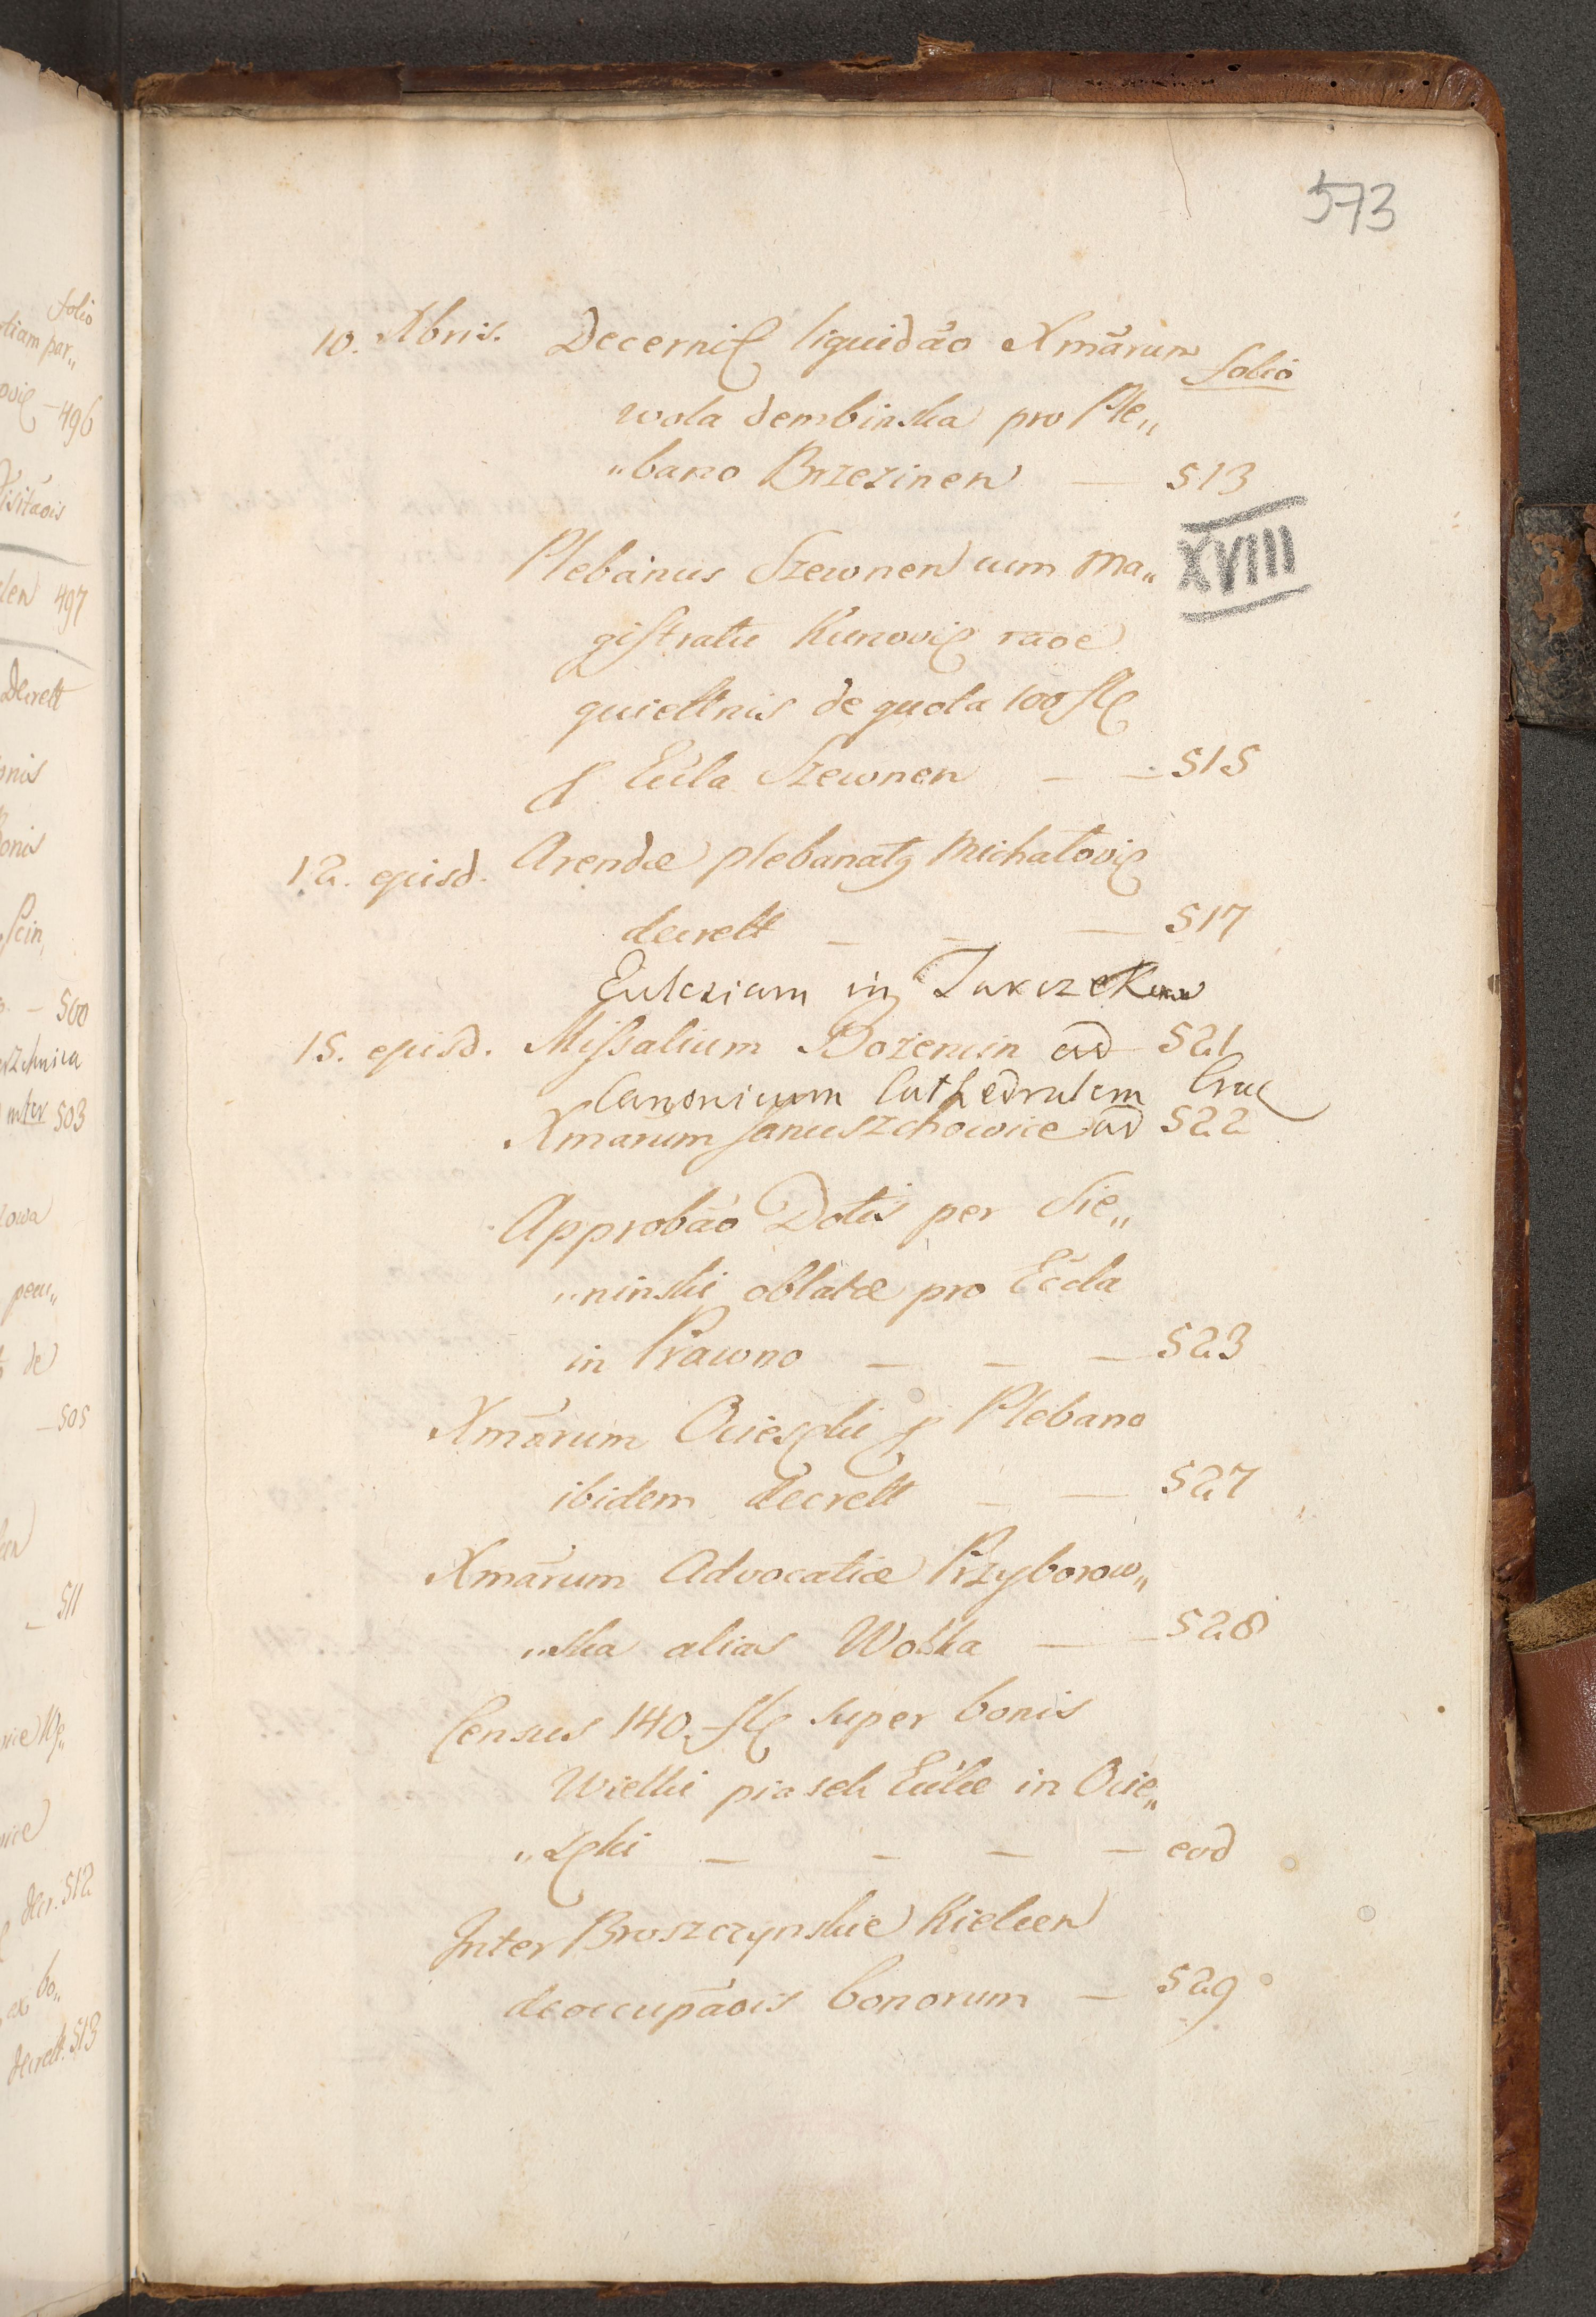 573
10. Xbris. Decernit liquidāo Xmārum
folio
wola dembinska pro Ple„
„bano Brzezinen — 513
Plebanus Szewnen cum Ma„
XVIII
gistratu Kunovic raōe
quiettnis de quota 100 fl
p Eccla Szewnen — — 515
12. ejusd. Arendæ plebanatg Michałovic
decrett — — — 517
Ecclesiam in Tarczek
15. ejusd. Missalium Bożęncin ad 521
Canonicum Cathedralem Crac
Xmārum Januszchowice ad 522
Approbāo Dotis per Sie„
„ninski oblatæ pro Eccla
in Prawno — — — 523
Xmārum Ocieski p Plebano
ibidem decrett — — 527
Xmārum Advocatiæ Przyborow„
„ska alias Wolka — — 528
Census 140. fl super bonis
Wielki piasek Ecclæ in Ocie„
„ski — — — — eod
Inter Broszczynskie Kielcen
deoccupāois bonorum — 529
folio
tiam par„
496
Visitāois
len 497
Decrett
onis
500
503
lowa
pecu„
de
— 505
— 511
decr. 512
ex bo„
decrett. 513